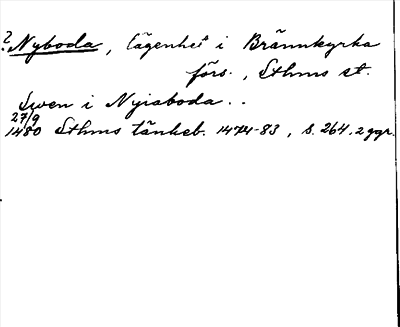 ? Nyboda, lägenhet i Brännkyrka
förs., Sthms st.
Swen i Nyiaboda..
27/9
1480 Sthms tänkeb. 1474-83, s. 264. 2 ggr.